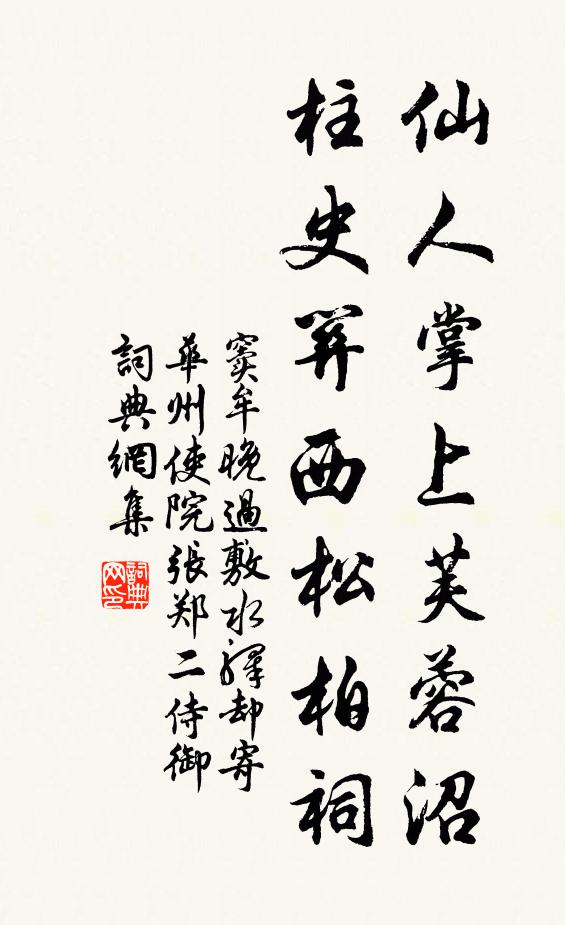 仙人掌上芙蓉沼
柱史關西松柏祠
窦牟晚過敷水驛却寄
華州使院張郑二侍御
詞典網集
詞典
网印